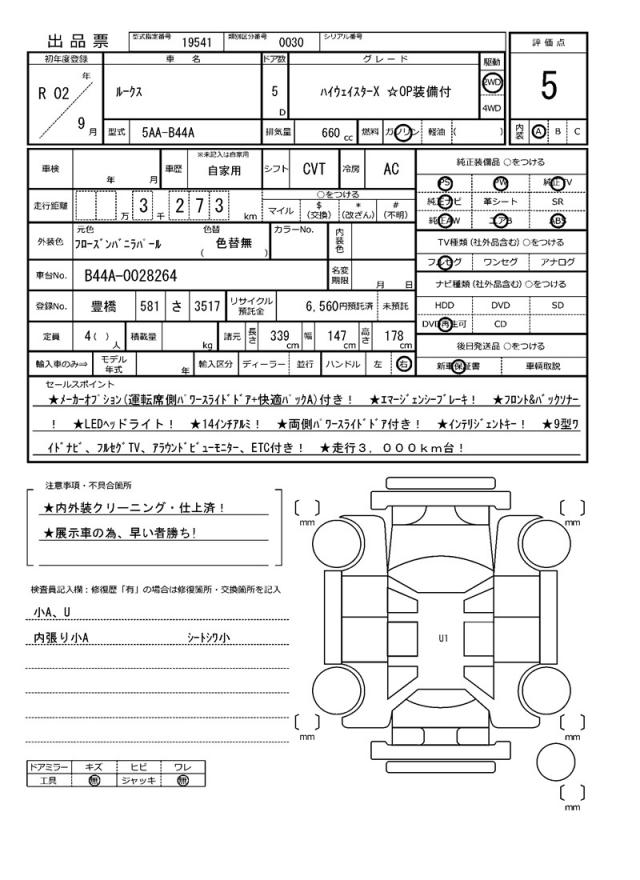 出品票
型式指定番号 19541 類別区分番号 0030 シリアル番号
初年度登録 車名 ドア数 グレード 駆動 評価点
R 02 年 9 月
ルークス 5 D ハイウェイスターX ☆OP装備付 2WD 4WD
5
型式 5AA-B44A 排気量 660 cc 燃料 ガソリン 軽油 ( )
内装 A B C
車検 年 月 車歴 ※未記入は自家用 自家用 シフト CVT 冷房 AC
走行距離 万 3 千 2 7 3 km
○をつける
マイル $(交換) *(改ざん) #(不明)
外装色 元色 フローズンバニラパール 色替 ( 色替無 ) カラーNo. 内装色
車台No. B44A-0028264 名変期限 月 日
登録No. 豊橋 581 さ 3517 リサイクル預託金 6,560円預託済 未預託
定員 4( )人 積載量 kg 諸元 長さ 339 cm 幅 147 cm 高さ 178 cm
輸入車のみ⇒ モデル年式 年 輸入区分 ディーラー ・ 並行 ハンドル 左 ・ 右
純正装備品 ○をつける
PS PW 純正TV
純正ナビ 革シート SR
純正AW エアB ABS
TV種類(社外品含む)○をつける
フルセグ ワンセグ アナログ
ナビ種類(社外品含む)○をつける
HDD DVD SD
DVD再生可 CD
後日発送品 ○をつける
新車保証書 車輌取説
セールスポイント
★メーカーオプション(運転席側パワースライドドア+快適パックA)付き! ★エマージェンシーブレーキ! ★フロント&バックソナー
! ★LEDヘッドライト! ★14インチアルミ! ★両側パワースライドドア付き! ★インテリジェントキー! ★9型ワ
イドナビ、フルセグTV、アラウンドビューモニター、ETC付き! ★走行3,000km台!
注意事項・不具合箇所
★内外装クリーニング・仕上済!
★展示車の為、早い者勝ち!
検査員記入欄:修復歴「有」の場合は修復箇所・交換箇所を記入
小A、U
内張り小A シートシワ小
ドアミラー キズ ヒビ ワレ
工具 無 ジャッキ 無
mm
mm
U1
mm
mm
mm